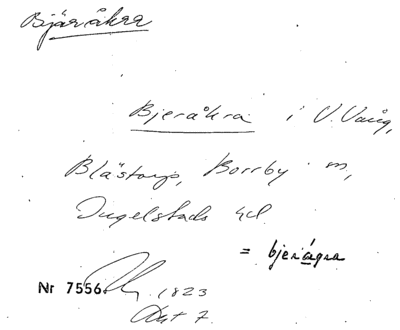 Bjäråkra
Bjeråkra i V. Vång,
Blästorp, Borrby m,
Ingelstads hd.
= bjerågra
Nr 7556. 1823
Akt 7